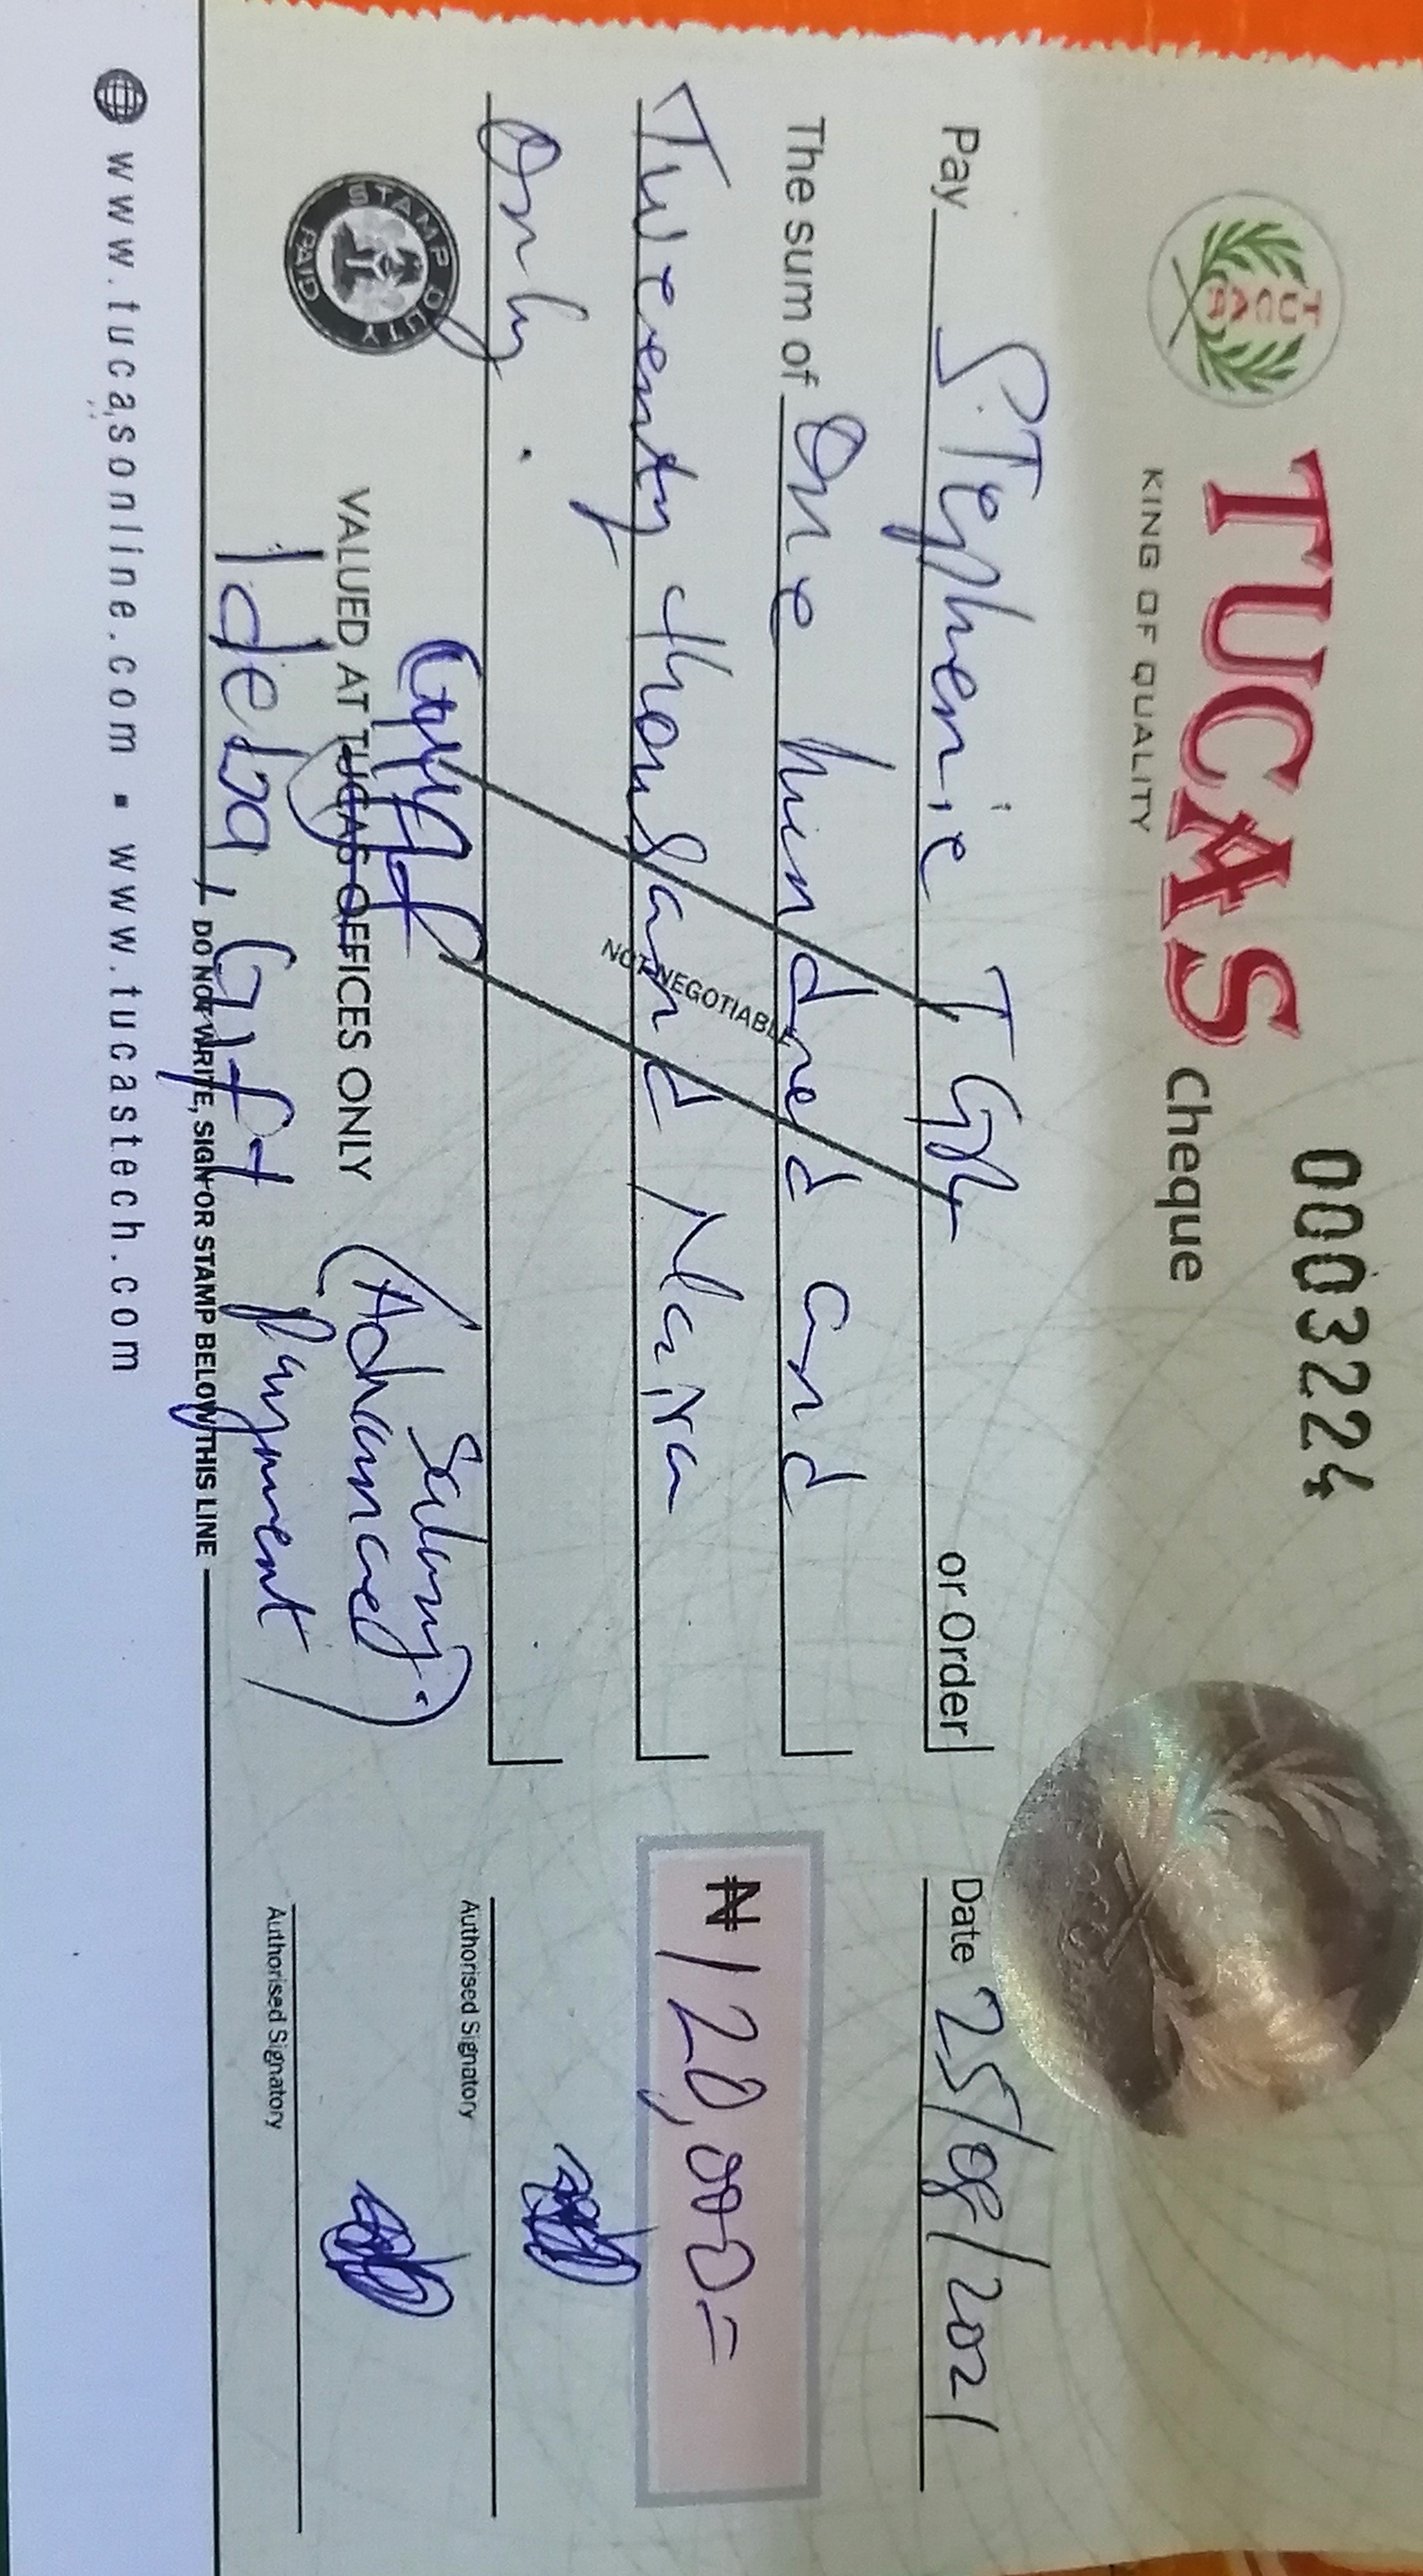 0003224
TUCAS Cheque
KING OF QUALITY
TUCAS
Pay Stephenie T G or Order
Date 25/08/2021
The sum of One hundred and
Tweenty thousand Naira
Only.
₦120,000=
NOT NEGOTIABLE
STAMP DUTY PAID
VALUED AT TUCAS OFFICES ONLY
Ideba, Gift
(Salary.
Advanced)
Payment)
Authorised Signatory
Authorised Signatory
DO NOT WRITE, SIGN OR STAMP BELOW THIS LINE
www.tucasonline.com ▪ www.tucastech.com